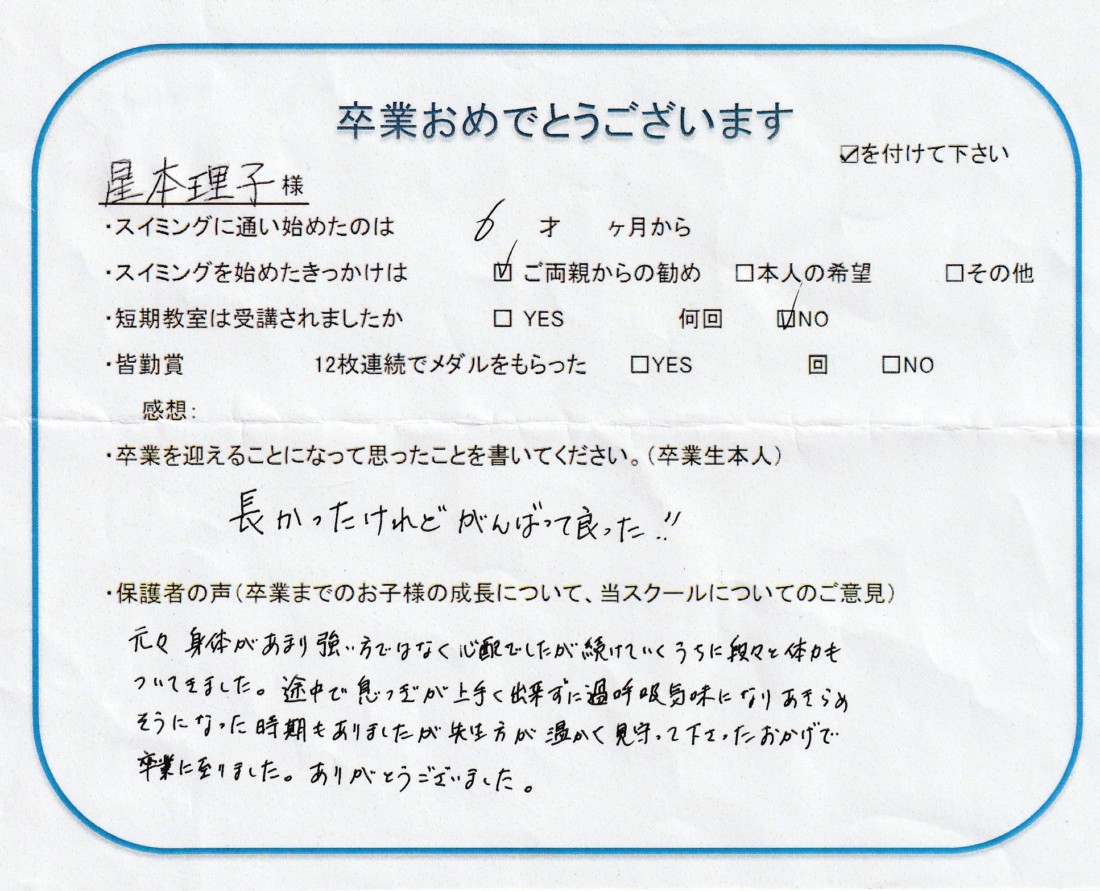 卒業おめでとうございます
☑を付けて下さい
星本理子様
・スイミングに通い始めたのは 6 才 ヶ月から
・スイミングを始めたきっかけは ☑ ご両親からの勧め □本人の希望 □その他
・短期教室は受講されましたか □ YES 何回 ☑NO
・皆勤賞 12枚連続でメダルをもらった □YES 回 □NO
感想:
・卒業を迎えることになって思ったことを書いてください。(卒業生本人)
長かったけれどがんばって良った!!
・保護者の声(卒業までのお子様の成長について、当スクールについてのご意見)
元々身体があまり強い方ではなく心配でしたが続けていくうちに段々と体力も
ついてきました。途中で息つぎが上手く出来ずに過呼吸気味になりあきらめ
そうになった時期もありましたが先生方が温かく見守って下さったおかげで
卒業に至りました。ありがとうございました。